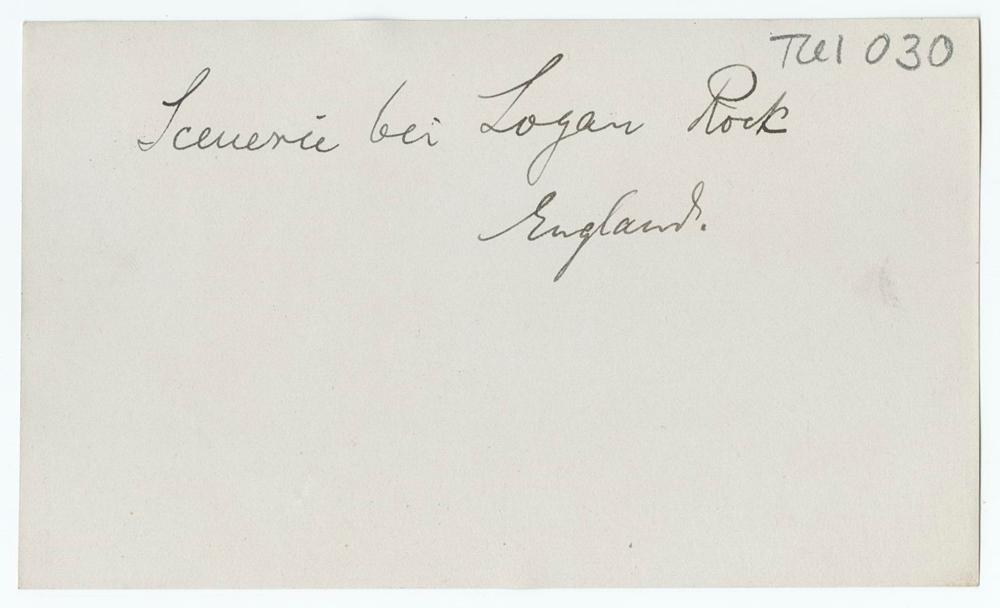 TU1 030
Scenerie bei Logan Rock
England.